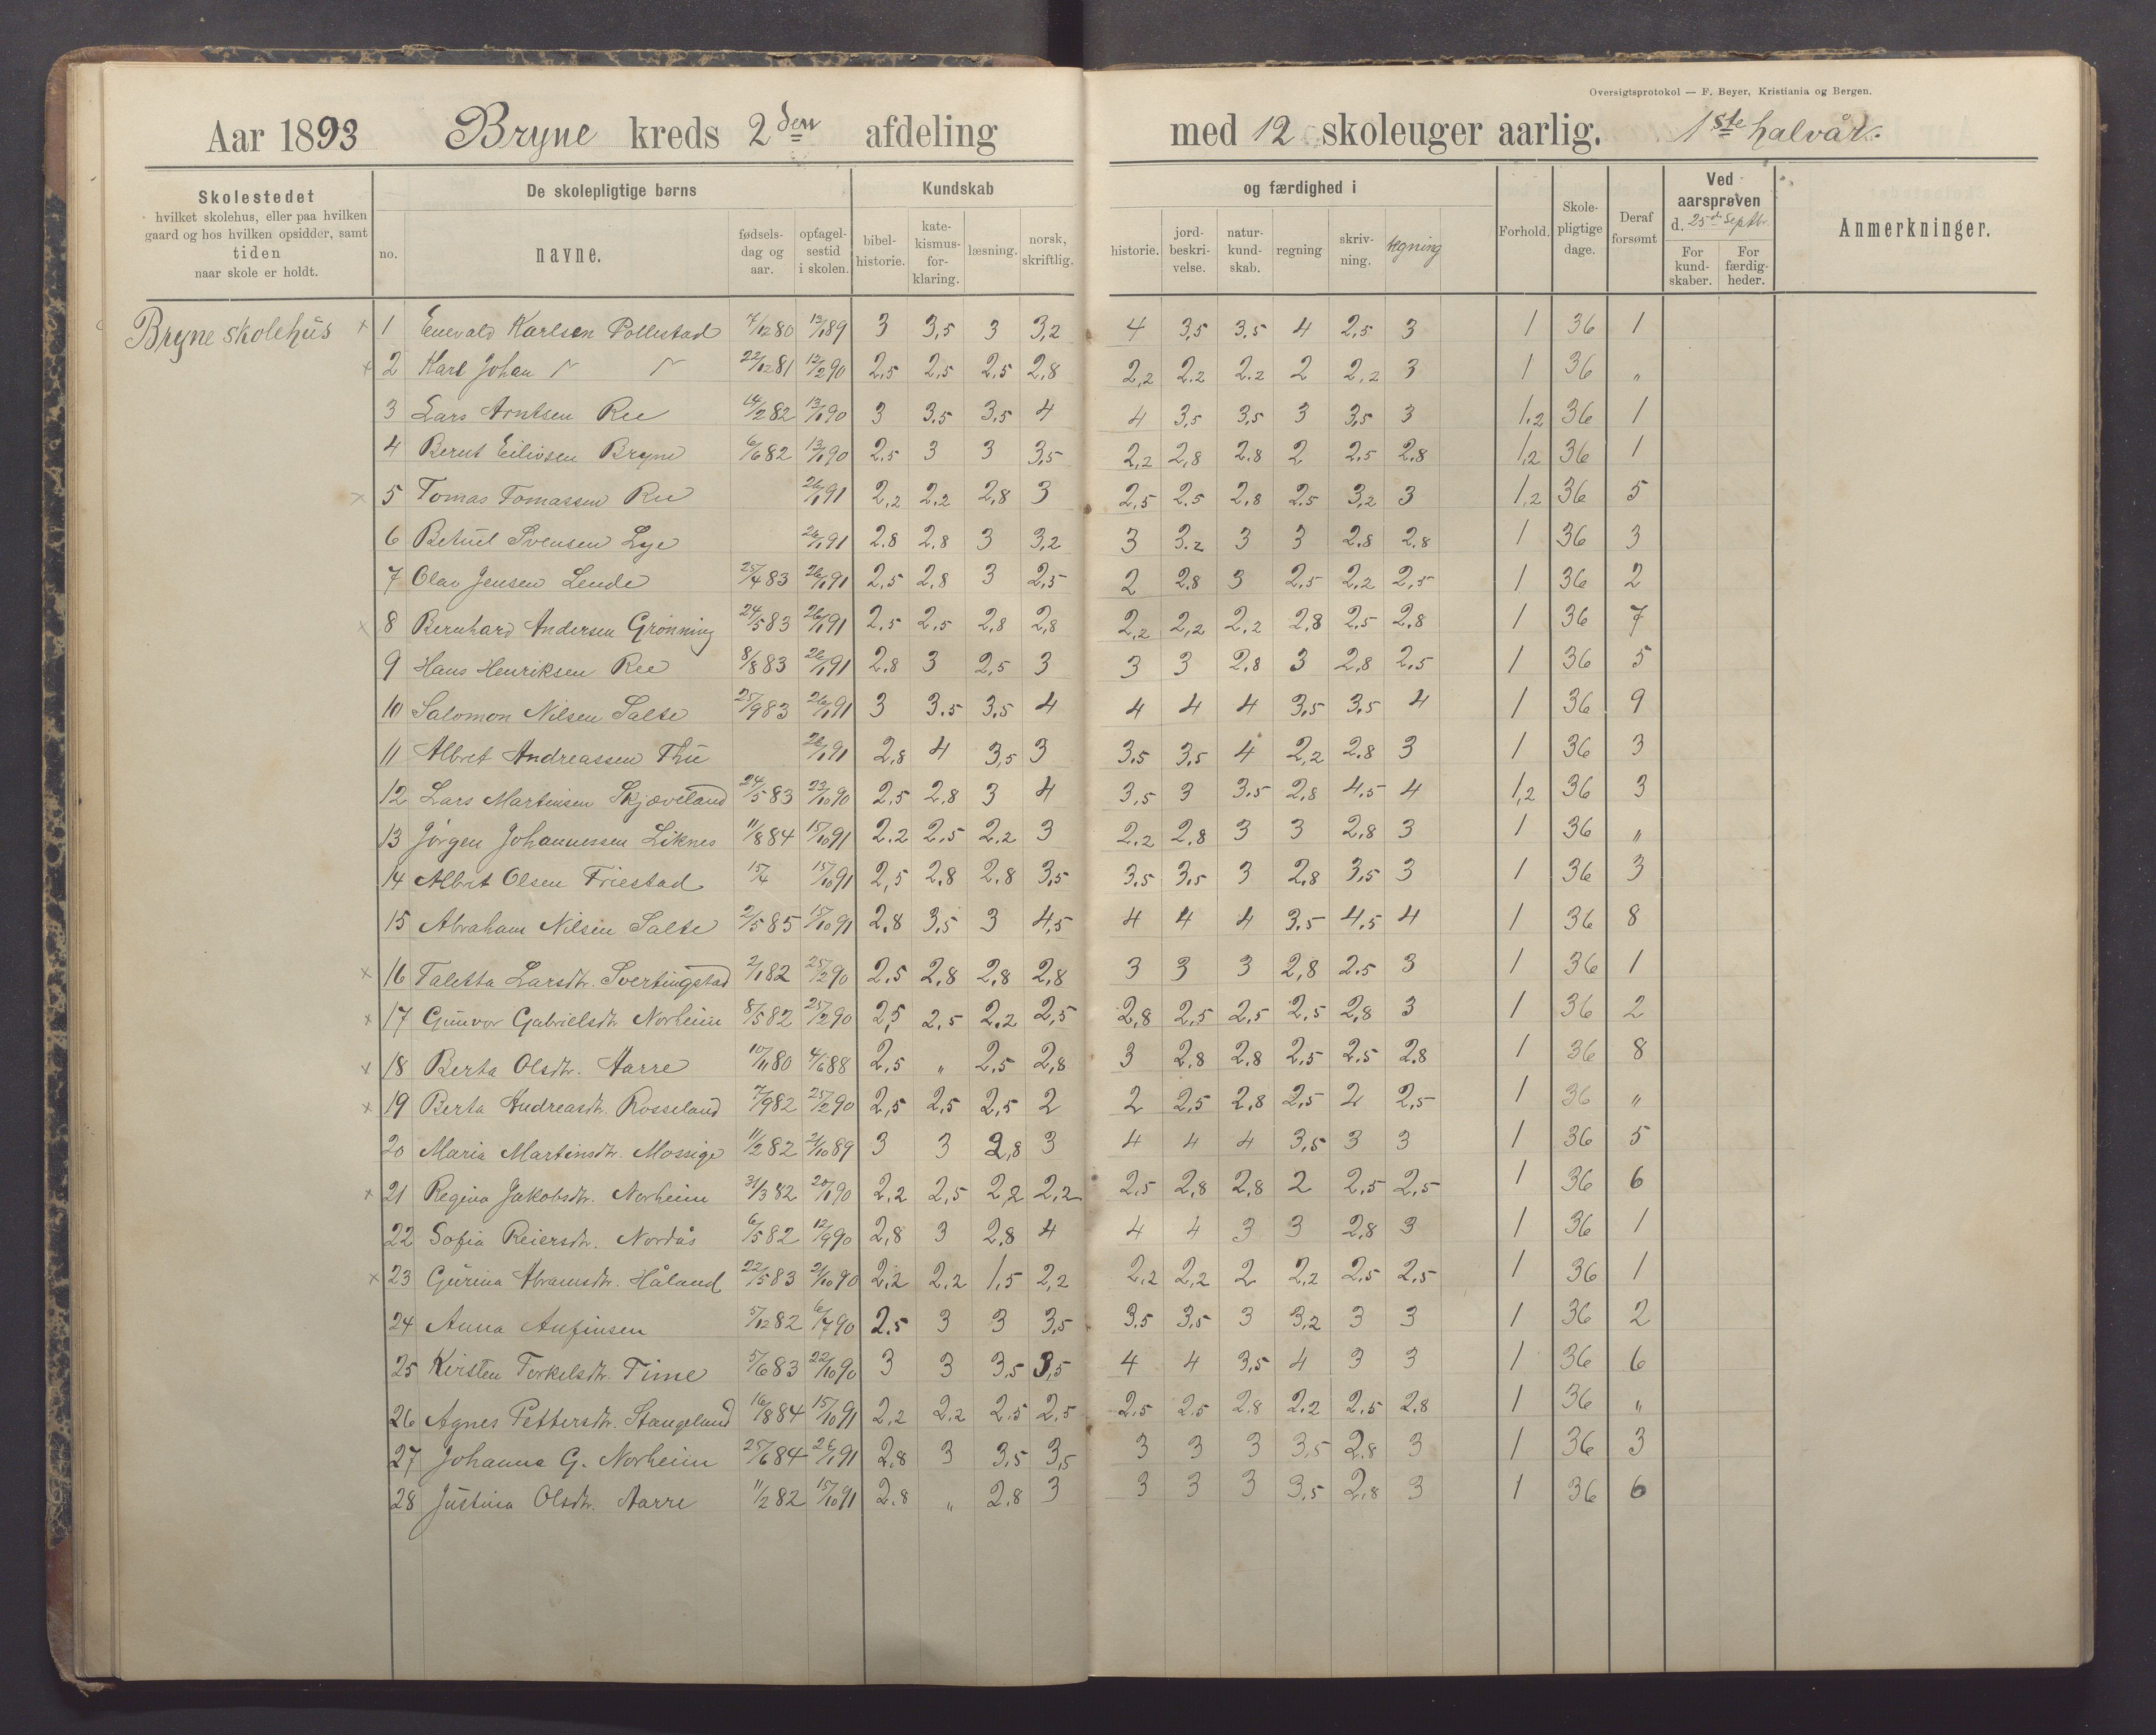 Oversigtsprotokol — F. Beyer, Kristiania og Bergen.
Aar 1893 Bryne kreds 2den afdeling med 12 skoleuger aarlig. 1ste halvår.
Skolestedet
hvilket skolehus, eller paa hvilken
gaard og hos hvilken opsidder, samt
tiden
naar skole er holdt.
De skolepligtige børns
no. navne. fødsels-dag og aar. optagel-sestid i skolen.
Kundskab og færdighed i
bibel-historie. kate-kismus-for-klaring. læsning. norsk, skriftlig. historie. jord-beskri-velse. natur-kund-skab. regning skriv-ning. tegning
Forhold. Skole-pligtige dage. Deraf forsømt
Ved aarsprøven d. 25de Septbr.
For kund-skaber. For færdig-heder.
Anmerkninger.
Bryne skolehus
x 1 Enevald Karlsen Pollestad 7/12 80 13/1 89 3 3,5 3 3,2 4 3,5 3.5 4 2,5 3 1 36 1
x 2 Karl Johan " " 22/12 81 12/2 90 2,5 2,5 2,5 2,8 2,2 2.2 2.2 2 2,2 3 1 36 "
3 Lars Arntsen Ree 14/2 82 13/1 90 3 3.5 3.5 4 4 3,5 3,5 3 3,5 3 1,2 36 1
4 Bernt Eilivsen Bryne 6/6 82 13/1 90 2.5 3 3 3,5 2,2 2,8 2.8 2 2.5 2.8 1,2 36 1
x 5 Tomas Tomassen Ree 26/1 91 2,2 2,2 2,8 3 2,5 2.5 2,8 2.5 3,2 3 1,2 36 5
6 Betuel Svensen Lye 26/1 91 2.8 2,8 3 3,2 3 3.2 3 3 2.8 2.8 1 36 3
7 Olav Jensen Lende 25/4 83 26/1 91 2,5 2,8 3 2,5 2 2.8 3 2,5 2,2 2,5 1 36 2
x 8 Bernhard Andersen Grønning 24/5 83 26/1 91 2.5 2.5 2,8 2,8 2,2 2,2 2,2 2,8 2.5 2.8 1 36 7
9 Hans Henriksen Ree 8/8 83 26/1 91 2.8 3 2,5 3 3 3 2,8 3 2,8 2,5 1 36 5
10 Salomon Nilsen Salte 25/9 83 26/1 91 3 3.5 3,5 4 4 4 4 3,5 3,5 4 1 36 9
11 Albret Andreassen Thu 26/1 91 2,8 4 3,5 3 3.5 3,5 4 2,2 2.8 3 1 36 3
12 Lars Martinsen Skjæveland 24/5 83 23/10 90 2,5 2,8 3 4 3,5 3 3.5 2,8 4.5 4 1,2 36 3
13 Jörgen Johannessen Liknes 11/8 84 15/10 91 2.2 2,5 2,2 3 2,2 2,8 3 3 2,8 3 1 36 "
14 Albret Olsen Friestad 15/4 15/10 91 2,5 2,8 2,8 3,5 3.5 3,5 3 2,8 3,5 3 1 36 3
15 Abraham Nilsen Salte 2/5 85 15/10 91 2,8 3,5 3 4,5 4 4 4 3,5 4,5 4 1 36 8
x 16 Taletta Larsdtr. Svertingstad 2/1 82 25/2 90 2,5 2,8 2,8 2,8 3 3 3 2,8 2.5 3 1 36 1
x 17 Gunvor Gabrielsdtr Norheim 8/5 82 25/2 90 2,5 2,5 2,2 2,5 2,8 2,5 2,5 2.5 2,8 3 1 36 2
x 18 Berta Olsdtr. Aarre 10/11 80 4/6 88 2,5 " 2,5 2,8 3 2,8 2,8 2,5 2.5 2.8 1 36 8
x 19 Berta Andreasdtr. Rosseland 7/9 82 25/2 90 2,5 2,5 2,5 2 2 2,5 2,8 2,5 2 2,5 1 36 "
20 Maria Martinsdtr. Mossige 11/2 82 21/10 89 3 3 2,8 3 4 4 4 3,5 3 3 1 36 5
x 21 Regina Jakobsdtr. Norheim 31/3 82 20/1 90 2,2 2,5 2,2 2,2 2.5 2,8 2,8 2 2,5 2,5 1 36 6
22 Sofia Reiersdtr. Nordås 6/5 82 12/9 90 2,8 3 2,8 4 4 4 3 3 2,8 3 1 36 1
x 23 Gurina Abramsdtr. Håland 22/5 83 21/10 90 2,2 2,2 1,5 2,2 2,2 2,2 2 2,2 2,5 2,5 1 36 1
24 Anna Anfinsen 5/12 82 6/7 90 2.5 3 3 3,5 3.5 3,5 3 3,2 3 3 1 36 2
25 Kirsten Torkelsdtr. Time 5/6 83 22/10 90 3 3 3,5 3,5 4 4 3,5 4 3 3 1 36 6
26 Agnes Pettersdtr. Stangeland 16/8 84 15/10 91 2,2 2,2 2,5 2,5 2.5 2.5 2.8 2.2 2.5 2.8 1 36 "
27 Johanna G. Norheim 25/6 84 26/1 91 2,8 3 3,5 3,5 3 3 3 3,5 2,8 3 1 36 3
28 Justina Olsdtr. Aarre 11/2 82 15/10 91 2.8 " 2,8 3 3 3 3 3,5 2,8 3 1 36 6